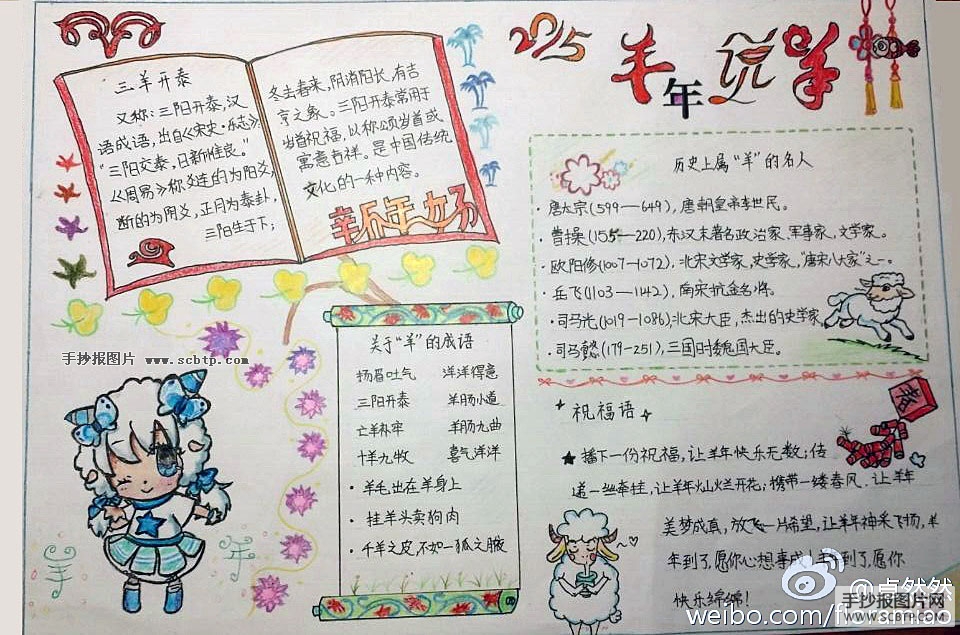 2015
羊年说羊
三羊开泰
又称:三阳开泰,汉
语成语,出自《宋史·乐志》:
"三阳交泰,日新惟良。"
《周易》称爻连的为阳爻,
断的为阴爻,正月为泰卦,
三阳生于下;
冬去春来,阴消阳长,有吉
亨之象。三阳开泰常用于
岁首祝福,以称颂岁首或
寓意吉祥。是中国传统
文化的一种内容。
新年好
历史上属"羊"的名人
·唐太宗(599—649),唐朝皇帝李世民。
·曹操(155—220),东汉末著名政治家、军事家、文学家。
·欧阳修(1007-1072),北宋文学家,史学家,"唐宋八大家"之一。
·岳飞(1103—1142),南宋抗金名将。
·司马光(1019-1086),北宋大臣,杰出的史学家
·司马懿(179-251),三国时魏国大臣。
手抄报图片 www.scbtp.com
关于"羊"的成语
扬眉吐气 洋洋得意
三阳开泰 羊肠小道
亡羊补牢 羊肠九曲
十羊九牧 喜气洋洋
·羊毛出在羊身上
·挂羊头卖狗肉
·千羊之皮,不如一狐之腋
祝福语
★播下一份祝福,让羊年快乐无数;传
递一丝牵挂,让羊年灿烂开花;携带一缕春风,让羊年
美梦成真,放飞一片希望,让羊年神采飞扬,羊
年到了,愿你心想事成!羊到了,愿你
快乐绵绵!
羊 年
@卓然然
手抄报图片网
WWW.SCBTP.COM